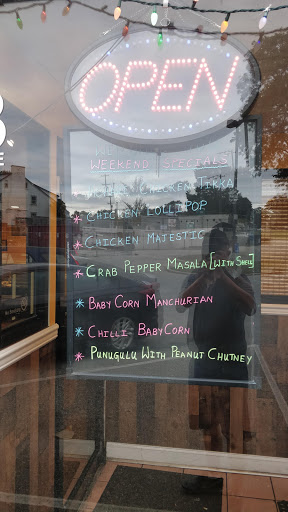 OPEN
WEEKEND SPECIALS
CHICKEN TIKKA
* CHICKEN LOLLIPOP
* CHICKEN MAJESTIC
* CRAB PEPPER MASALA [WITH SHELL]
* BABY CORN MANCHURIAN
* CHILLI BABYCORN
* PUNUGULU WITH PEANUT CHUTNEY